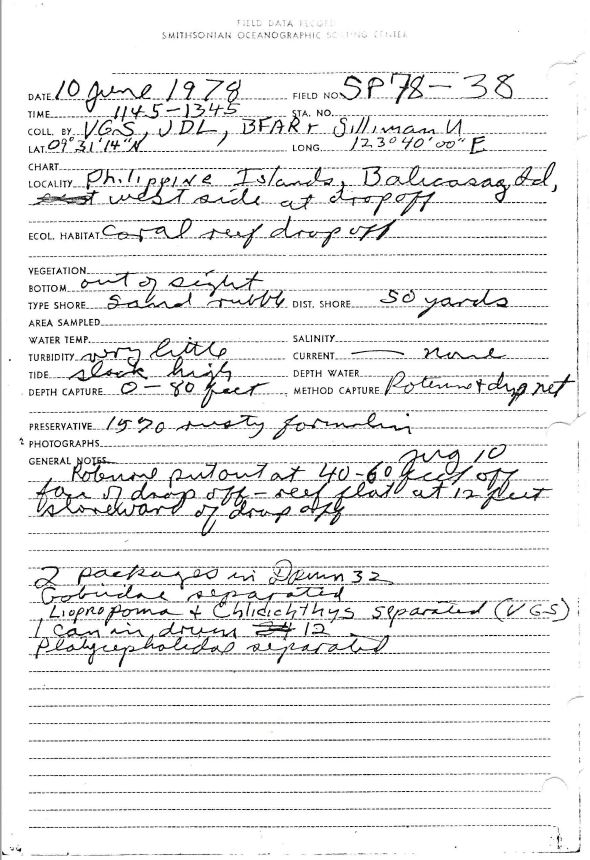 FIELD DATA RECORD
SMITHSONIAN OCEANOGRAPHIC SORTING CENTER
DATE 10 June 1978 FIELD NO. SP78-38
TIME 1145-1345 STA. NO.
COLL. BY VGS, JDL, BFAR & Silliman U
LAT. 09°31'14"N LONG. 123°40'00"E
CHART
LOCALITY Philippine Islands, Balicasag Id,
west side at dropoff
ECOL. HABITAT Coral reef drop off
VEGETATION
BOTTOM out of sight
TYPE SHORE Sand rubble DIST. SHORE 50 yards
AREA SAMPLED
WATER TEMP. SALINITY
TURBIDITY very little CURRENT — none
TIDE slack high DEPTH WATER
DEPTH CAPTURE 0-80 feet METHOD CAPTURE Rotenone + dip net
PRESERVATIVE 15% rusty formalin
PHOTOGRAPHS
GENERAL NOTES 10
put out at 40-60 feet off
face of drop off - reef flat at 12 feet
shoreward of drop off
2 packages in Drum 32
Gobiidae separated
Liopropoma + Chlidichthys separated (VGS)
1 can in drum 12
Platycephalidae separated